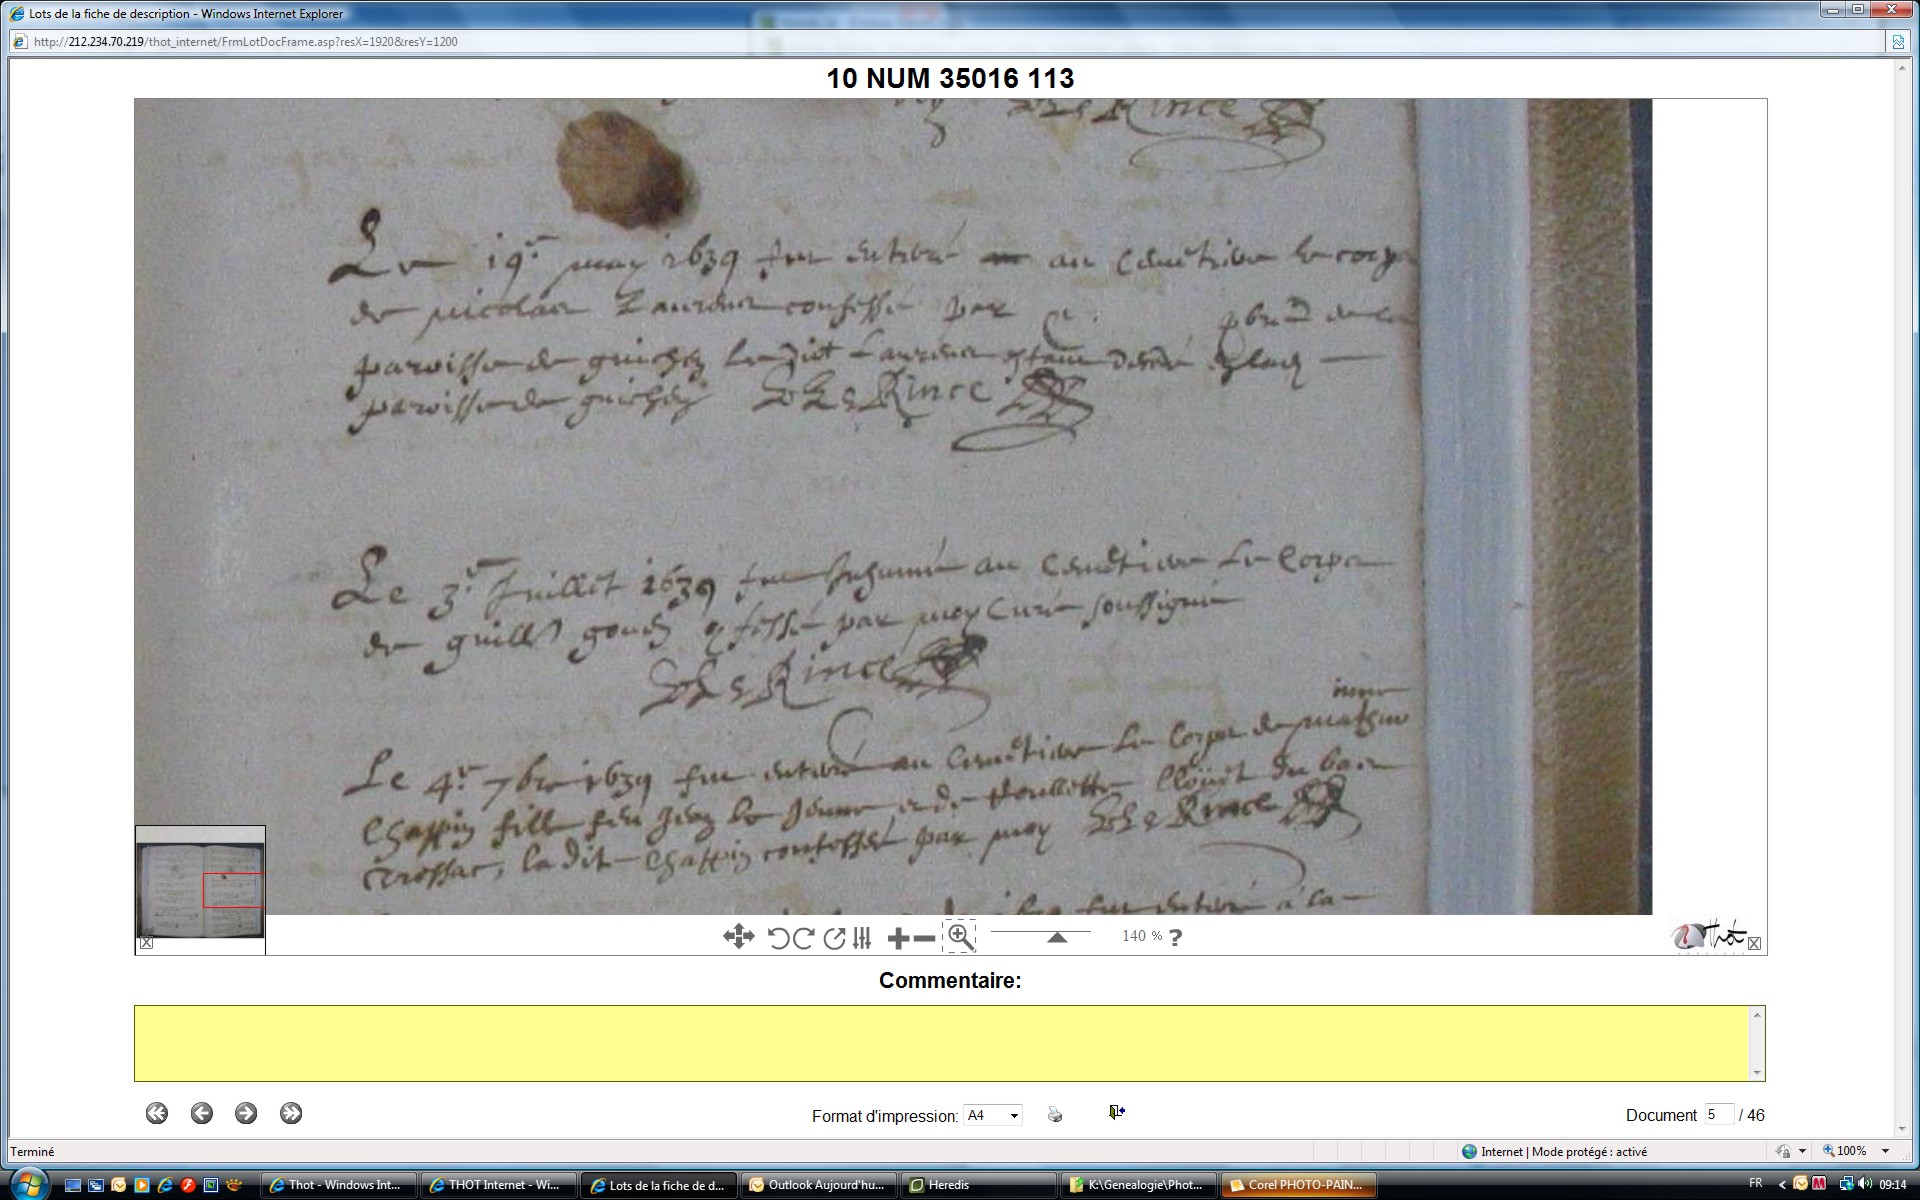 Lots de la fiche de description - Windows Internet Explorer
http://212.234.70.219/thot_internet/FrmLotDocFrame.asp?resX=1920&resY=1200
10 NUM 35016 113
Rince
Le 19e may 1639 fut enterré au cemetiere le corps
de nicolas Laurens confessé par pbre de la
paroisse de guichen le dit Laurens estant
paroisse de guichen Rince
Le 3e Juillet 1639 fut Inhumé au Cemetiere Le Corps
de guill gouin qfessé par moy Curé soussigné
Rince
Le 4e 7bre 1639 fut enterré au Cemetiere Le Corps de mathur
inne
Chappin fille feu Jan le Jeune et de Du bas
Crossac, la dit Chappin confessée par moy Rince
fut enterré à la
140 % ?
Thot
Commentaire:
Format d'impression: A4
Document 5 / 46
Terminé
Internet | Mode protégé : activé
100%
Thot - Windows Int...
THOT Internet - Wi...
Lots de la fiche de d...
Outlook Aujourd'hu...
Heredis
K:\Genealogie\Phot...
Corel PHOTO-PAIN...
FR
09:14